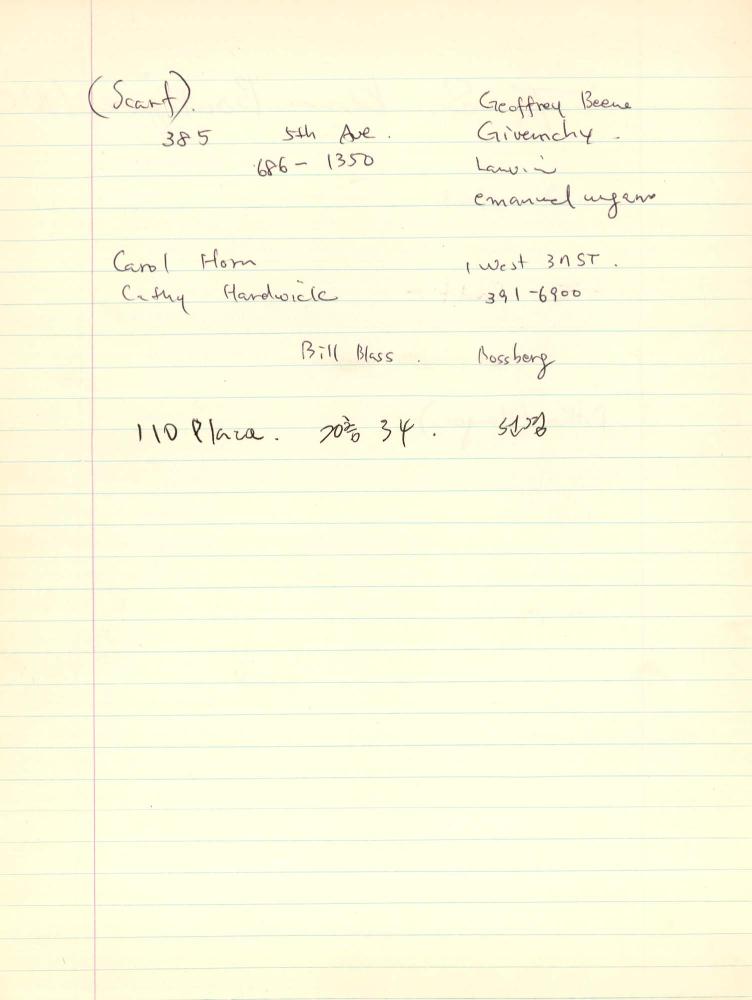 (Scarf).
Geoffrey Beene
385 5th Ave. Givenchy.
686-1350 Lanvin
emanuel ungaro
Carol Horn 1 West 3 ST.
Cathy Hardwick 391-6900
Bill Blass. Rossberg
110 Plaza. 20층 34. 선경